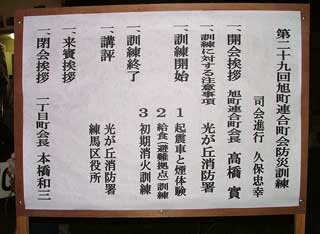 第二十九回旭町連合町会防災訓練
司会進行 久保忠幸
一、開会挨拶 旭町連合町会長 高橋 實
一、訓練に対する注意事項 光が丘消防署
一、訓練開始 1 起震車と煙体験
2 給食(避難拠点)訓練
3 初期消火訓練
一、訓練終了
一、講評 光が丘消防署
練馬区役所
一、来賓挨拶
一、閉会挨拶 二丁目町会長 本橋和三